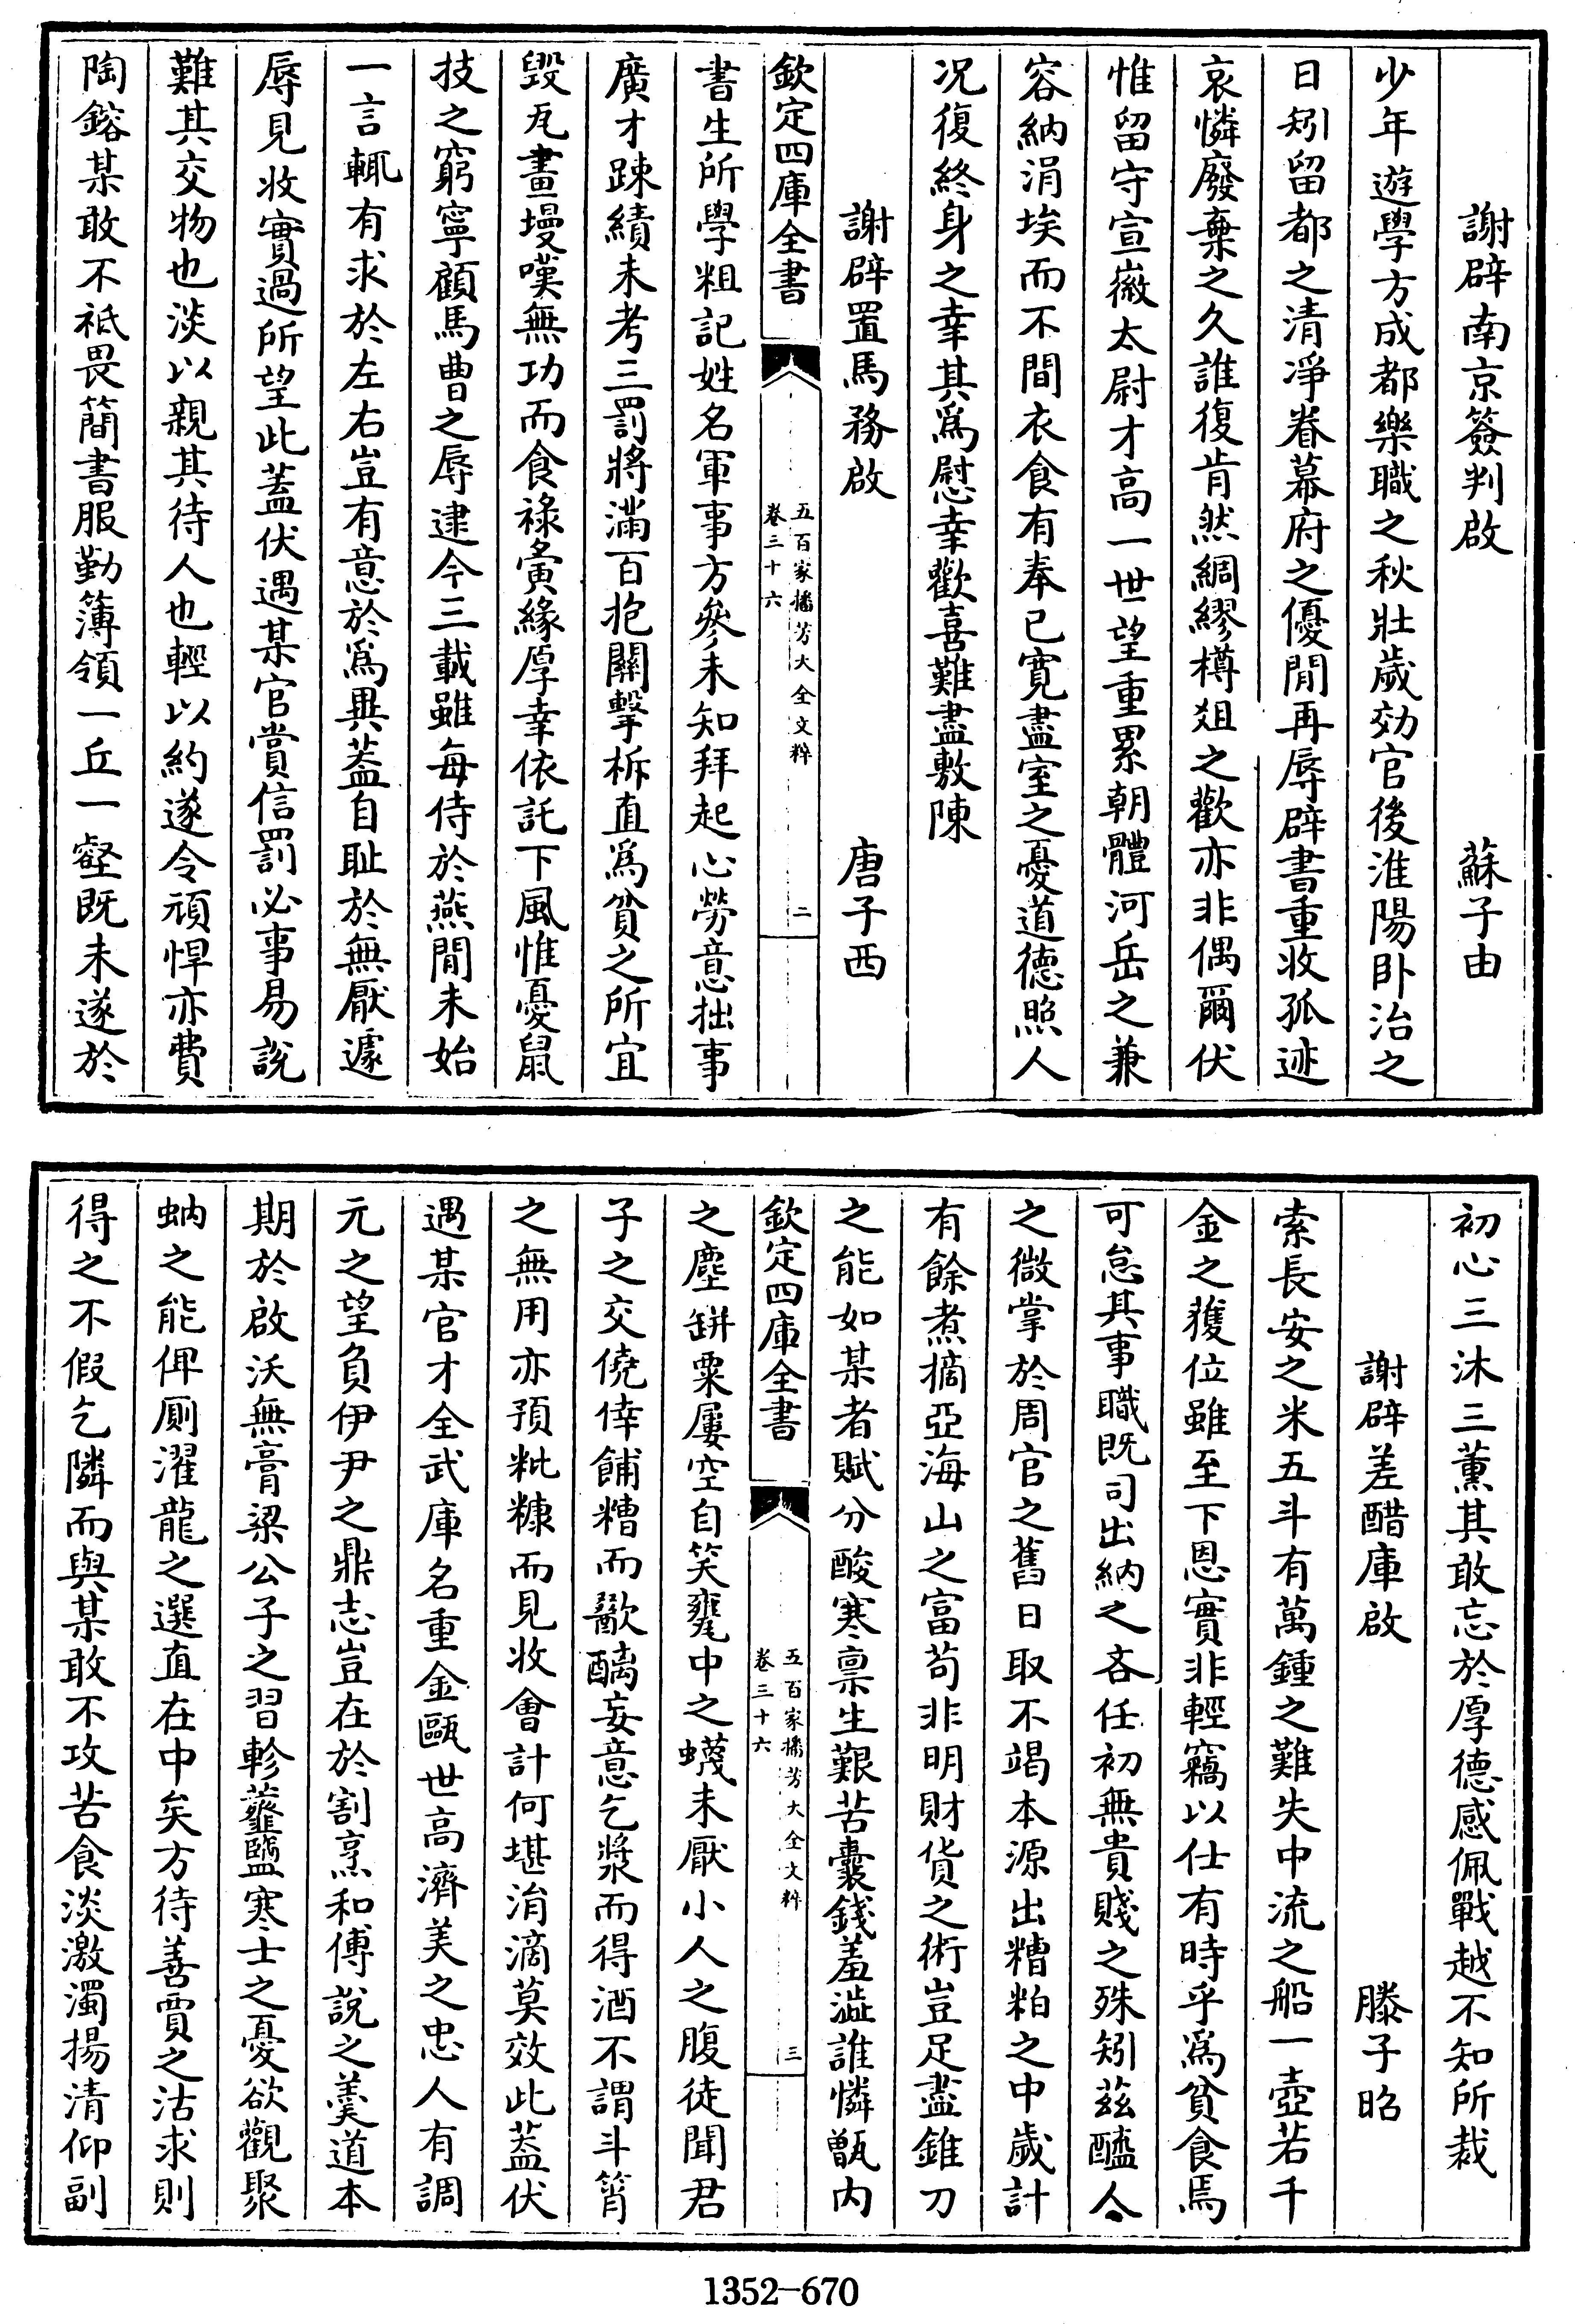 謝辟南京簽判啟　蘇子由
少年遊學方成都樂職之秋壯歲効官後淮陽卧治之
日矧留都之清凈眷幕府之優閒再辱辟書重收孤迹
哀憐廢棄之久誰復肯然綢繆樽俎之歡亦非偶爾伏
惟留守宣徽太尉才高一世望重累朝體河岳之兼
容納涓埃而不間衣食有奉已寛盡室之憂道德照人
况復終身之幸其為慰幸歡喜難盡敷陳
謝辟置馬務啟　唐子西
欽定四庫全書
五百家播芳大全文粹
卷三十六
二
書生所學粗記姓名軍事方叅未知拜起心勞意拙事
廣才踈績未考三罰將滿百抱關擊柝直為貧之所宜
毀瓦畫墁嘆無功而食祿夤緣厚幸依託下風惟憂鼠
技之窮寧顧馬曹之辱逮今三載雖每侍於燕閒未始
一言輒有求於左右豈有意於為異葢自耻於無厭遽
辱見收實過所望此蓋伏遇某官賞信罰必事易說
難其交物也淡以親其待人也輕以約遂令頑悍亦費
陶鎔某敢不祇畏簡書服勤簿領一丘一壑既未遂於
初心三沐三薰其敢忘於厚德感佩戰越不知所裁
謝辟差醋庫啟　滕子昭
索長安之米五斗有萬鍾之難失中流之船一壺若千
金之獲位雖至下恩實非輕竊以仕有時乎為貧食焉
可怠其事職既司出納之吝任初無貴賤之殊矧茲醯人
之微掌於周官之舊日取不竭本源出糟粕之中歲計
有餘煮摘亞海山之富苟非明財貨之術豈足盡錐刀
之能如某者賦分酸寒禀生艱苦囊錢羞澁誰憐甑内
欽定四庫全書
五百家播芳大全文粹
卷三十六
三
之塵缾粟屢空自笑甕中之蠛未厭小人之腹徒聞君
子之交僥倖餔糟而歠醨妄意乞漿而得酒不謂斗筲
之無用亦預粃糠而見收會計何堪涓滴莫效此葢伏
遇某官才全武庫名重金甌世高濟美之忠人有調
元之望負伊尹之鼎志豈在於割烹和傅說之羮道本
期於啟沃無膏粱公子之習軫虀鹽寒士之憂欲觀聚
蚋之能俾厠濯龍之選直在中矣方待善賈之沽求則
得之不假乞隣而與某敢不攻苦食淡激濁揚清仰副
1352-670